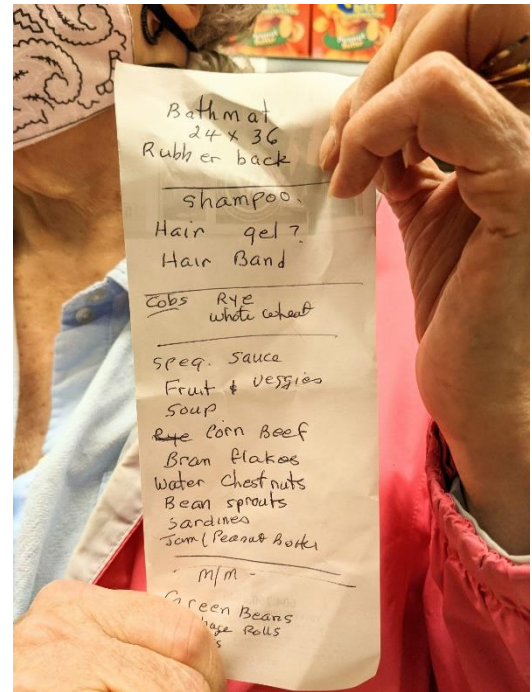 Bathmat
24 x 36
Rubber back
Shampoo.
Hair gel?
Hair Band
Cobs Rye
whole wheat
Speg. Sauce
Fruit & Veggies
Soup
Rye Corn Beef
Bran flakes
Water Chestnuts
Bean sprouts
Sardines
Jam/Peanut Butter
- M/M -
Green Beans
Rolls